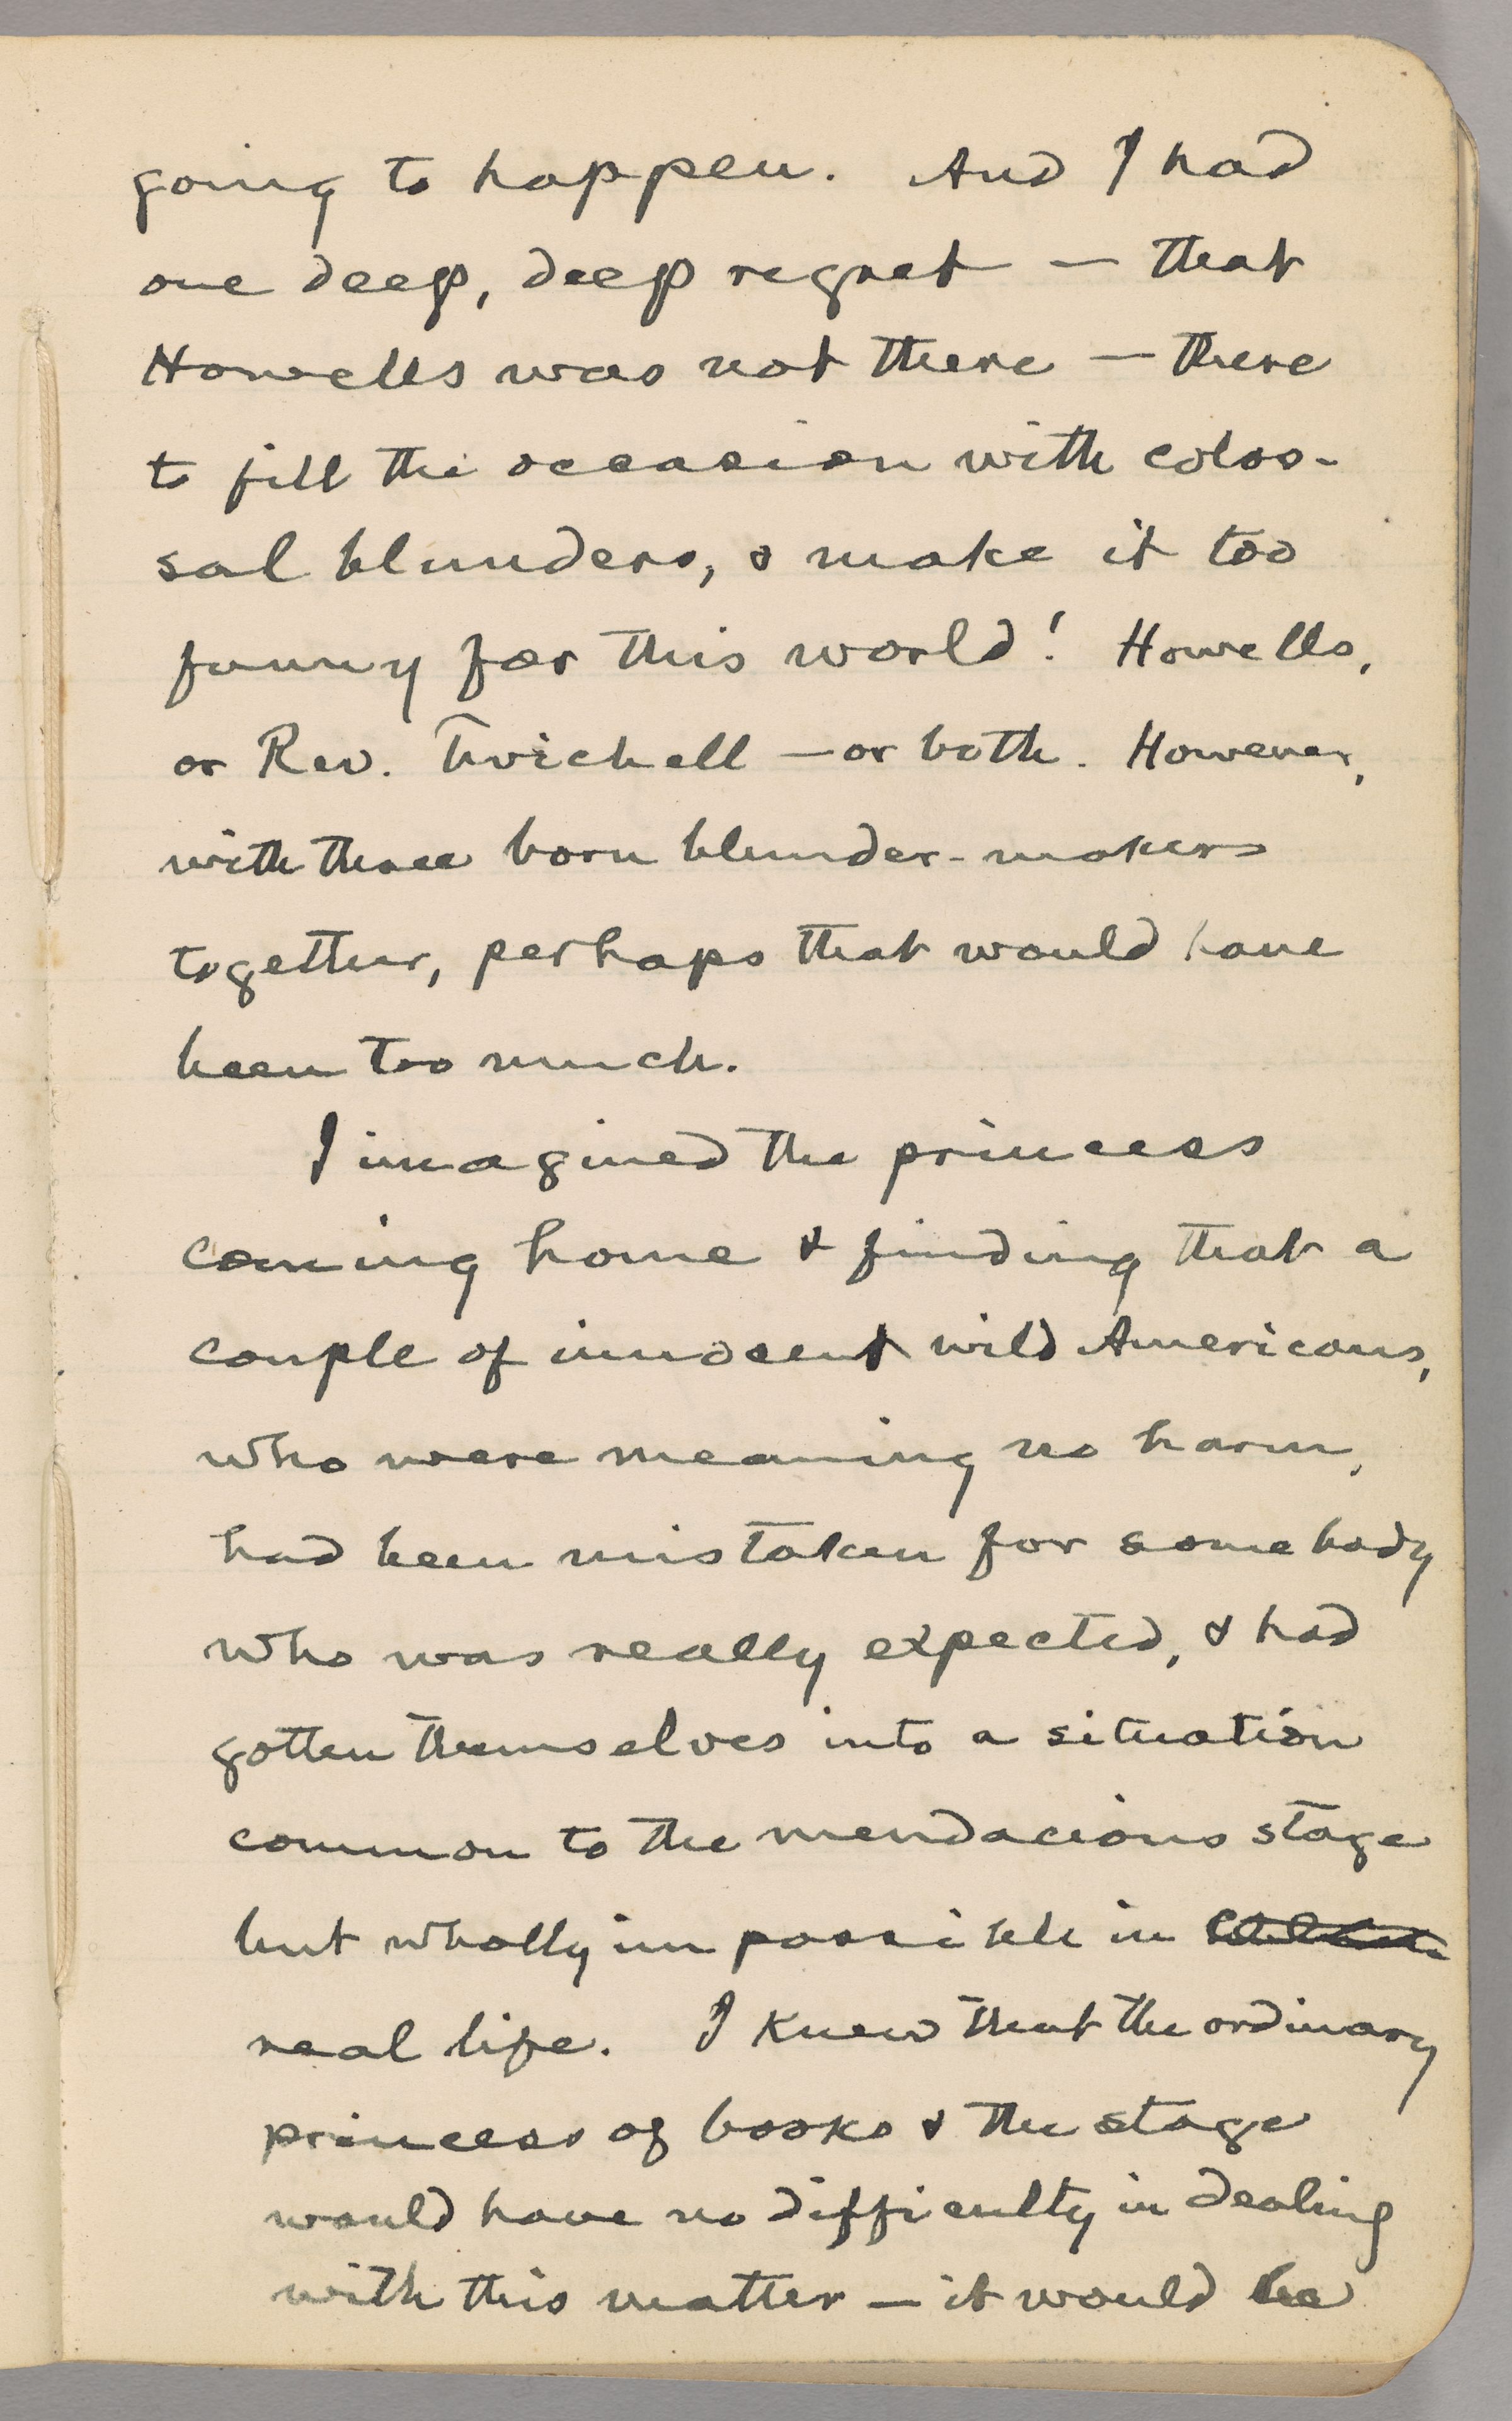 going to happen. And I had
one deep, deep regret — that
Howells was not there — there
to fill the occasion with colos-
sal blunders, & make it too
funny for this world! Howells,
or Rev. Twichell — or both. However,
with three born blunder-makers
together, perhaps that would have
been too much.
I imagined the princess
coming home & finding that a
couple of innocent wild Americans,
who were meaning no harm,
had been mistaken for somebody
who was really expected, & had
gotten themselves into a situation
common to the mendacious stage
but wholly impossible in
real life. I knew that the ordinary
princess of books & the stage
would have no difficulty in dealing
with this matter — it would be